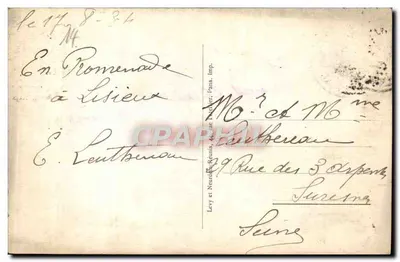 le 17-8-34
En Promenade
à Lisieux
E. Lautheneau
Mr et Mme
Lautheneau
29 Rue des 3 Arpents
Suresnes
Seine
Levy et Neurdein Réunis, Paris, Imp.
CPArama.com